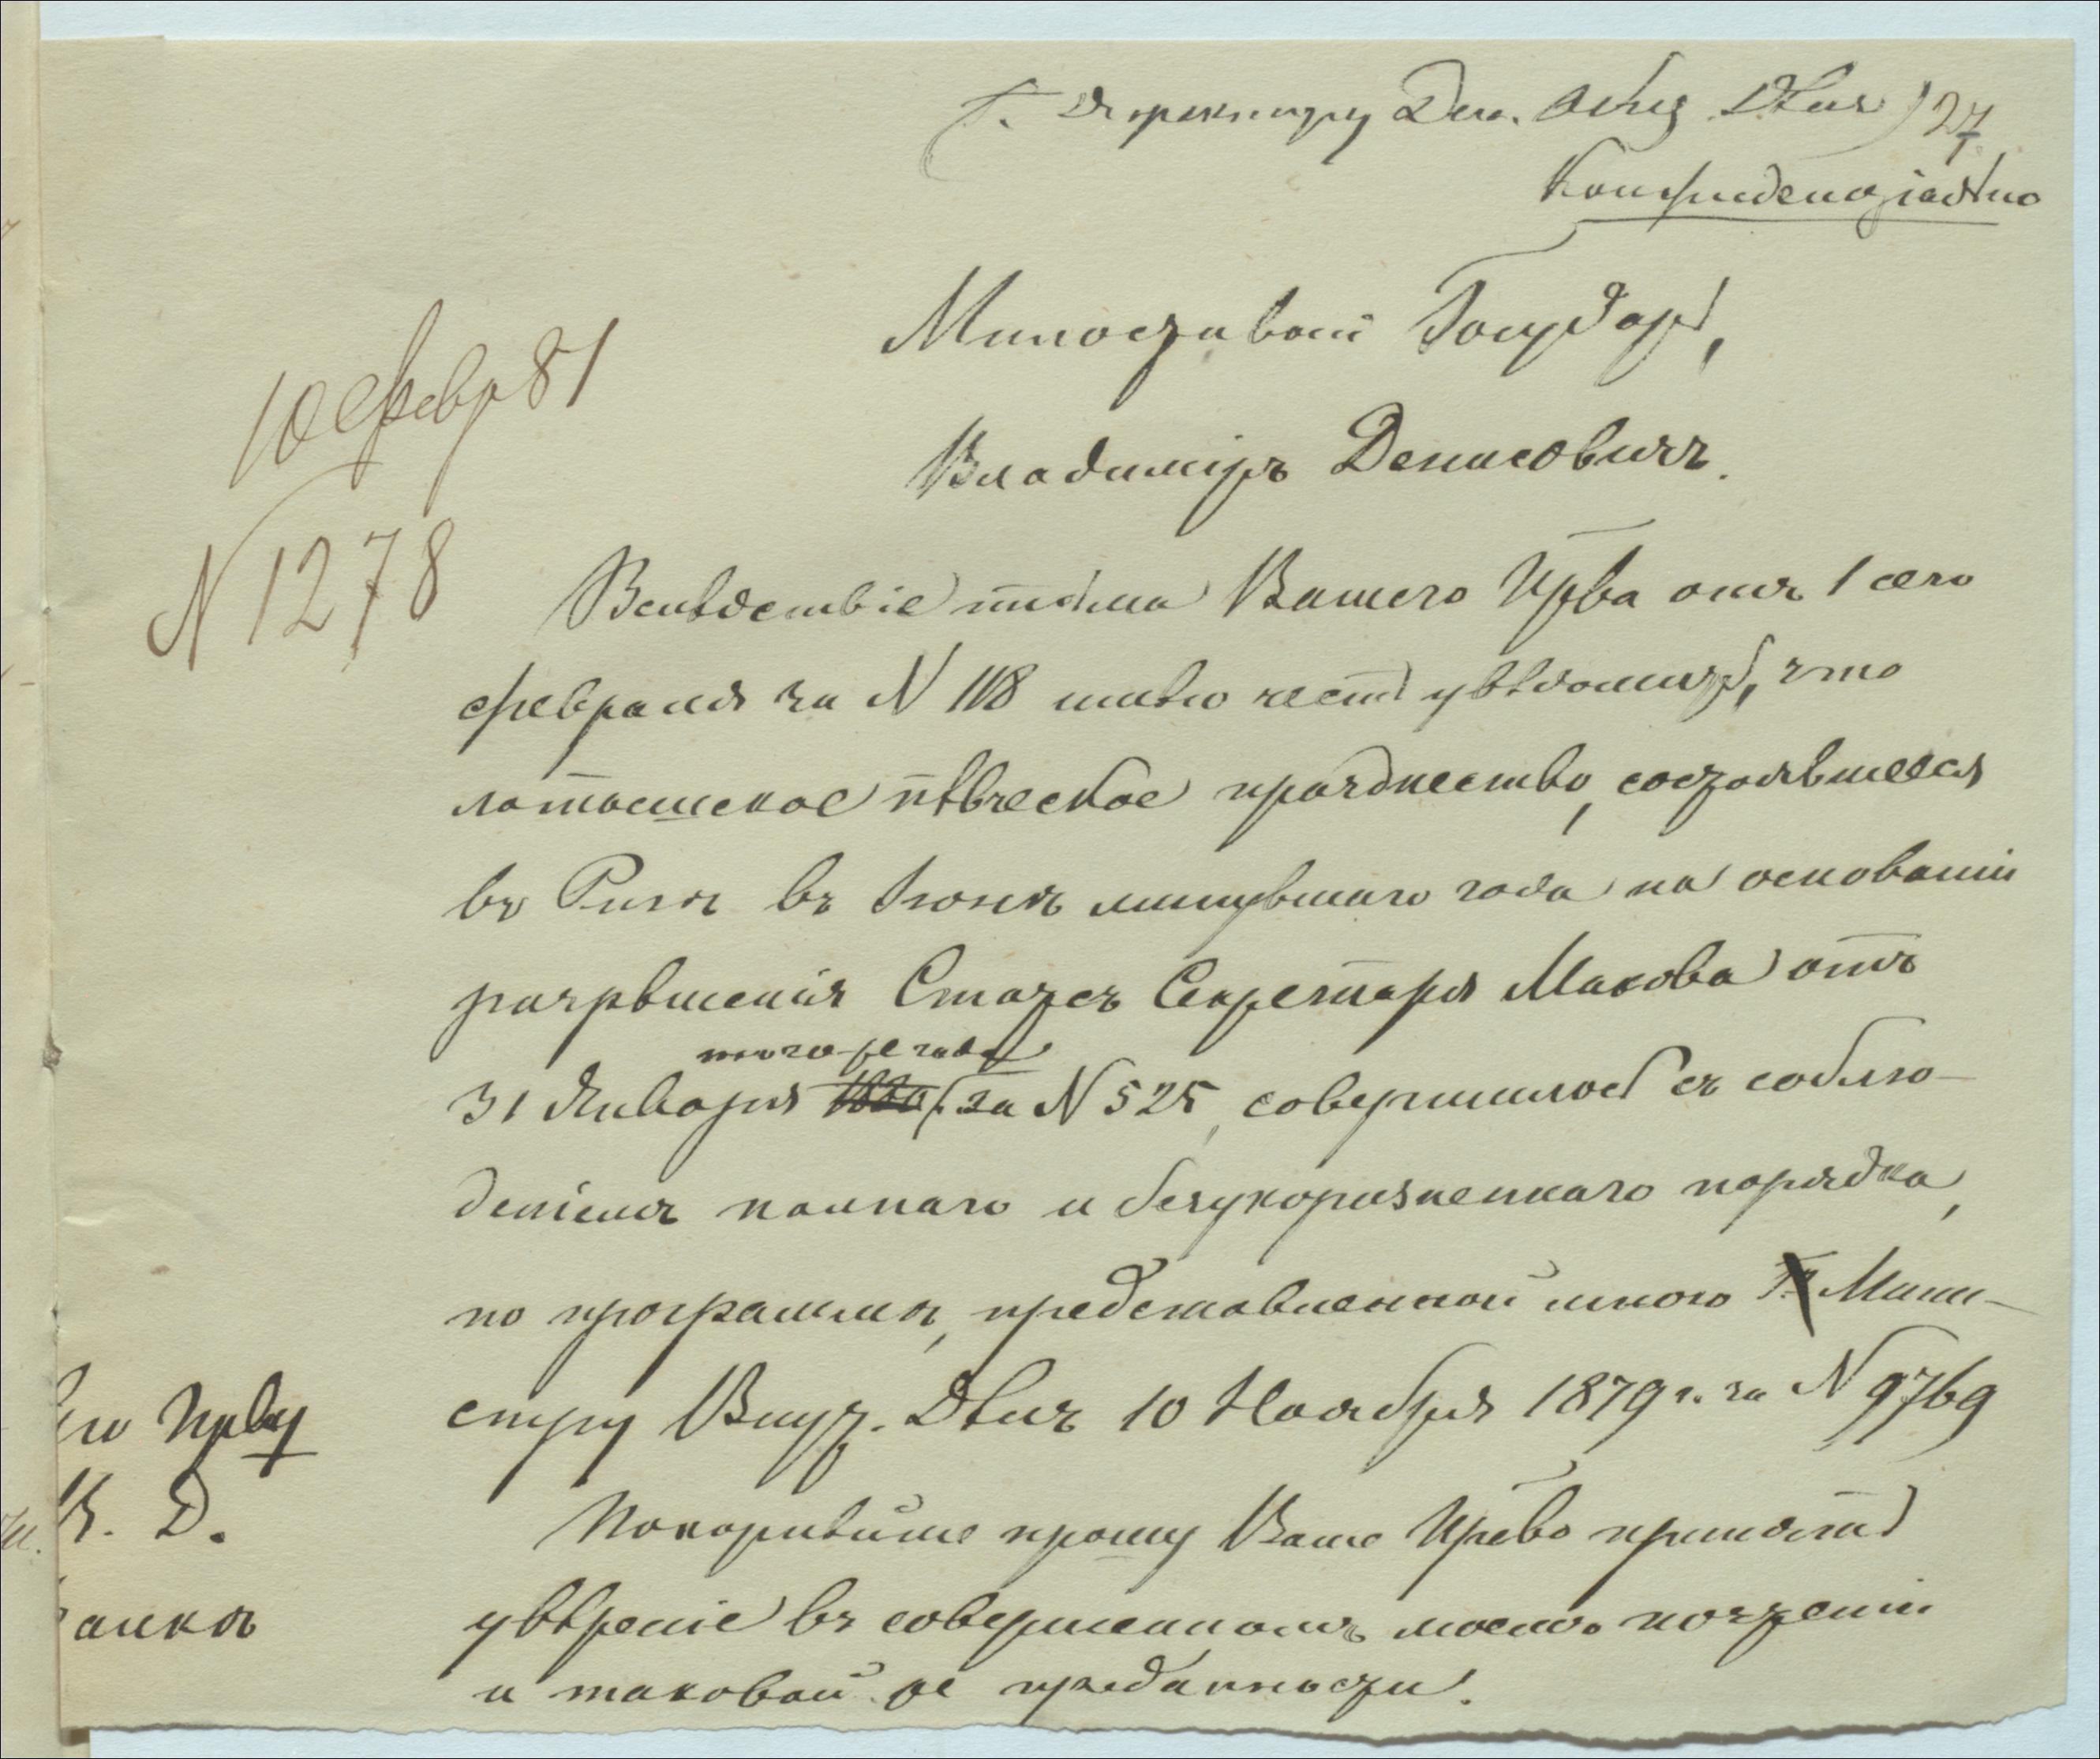 Г. Директору Деп. Общ. Дѣлъ
Конфиденціально
Милостивый Государь,
10 Февр 81
Владиміръ Денисовичъ.
N 1278
Вслѣдствіе письма Вашего Прва отъ 1 сего
февраля за N 118 имѣю честь увѣдомить, что
латышское пѣвческое празднество, состоявшееся
въ Ригѣ въ Іюнѣ минувшаго года на основаніи
разрѣшенія Статсъ Секретаря Макова отъ
того же года
31 Января 1880 г. за N 525, совершилось съ соблю-
деніемъ полнаго и безукоризненнаго порядка,
по программѣ, представленной мною Г. Мини-
стру Внут. Дѣлъ 10 Ноября 1879 г. за N 9769
Прву
Покорнѣйше прошу Ваше Прево принять
В. Д.
увѣреніе въ совершенномъ моемъ почтеніи
и таковой же преданности.